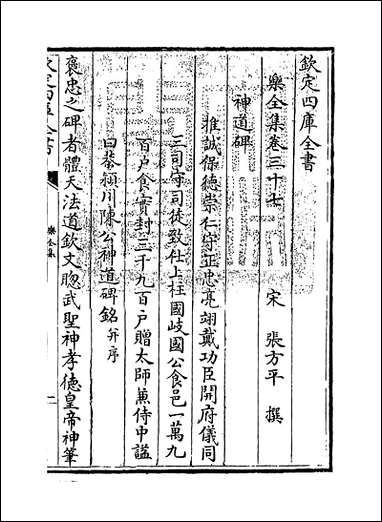 欽定四庫全書
樂全集卷三十七
宋 張方平 撰
神道碑
推誠保德崇仁守正忠亮翊戴功臣開府儀同
三司守司徒致仕上柱國岐國公食邑一萬九
百户食實封三千九百户贈太師兼侍中諡
曰恭潁川陳公神道碑銘并序
褒忠之碑者體天法道欽文聰武聖神孝德皇帝神筆
樂全集